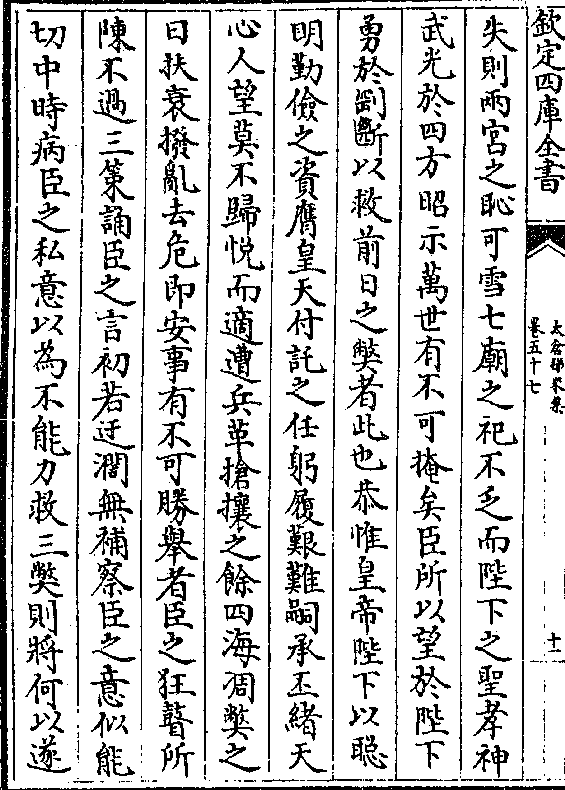 欽定四庫全書
太倉稊米集
卷五十七
十一
失則兩宮之恥可雪七廟之祀不乏而陛下之聖孝神
武光於四方昭示萬世有不可掩矣臣所以望於陛下
勇於剛斷以救前日之弊者此也恭惟皇帝陛下以聰
明勤儉之資膺皇天付託之任躬履艱難嗣承丕緒天
心人望莫不歸悦而適遭兵革搶攘之餘四海凋弊之
日扶衰撥亂去危即安事有不可勝舉者臣之狂瞽所
陳不過三策誦臣之言初若迂濶無補察臣之意似能
切中時病臣之私意以為不能力救三弊則將何以遂